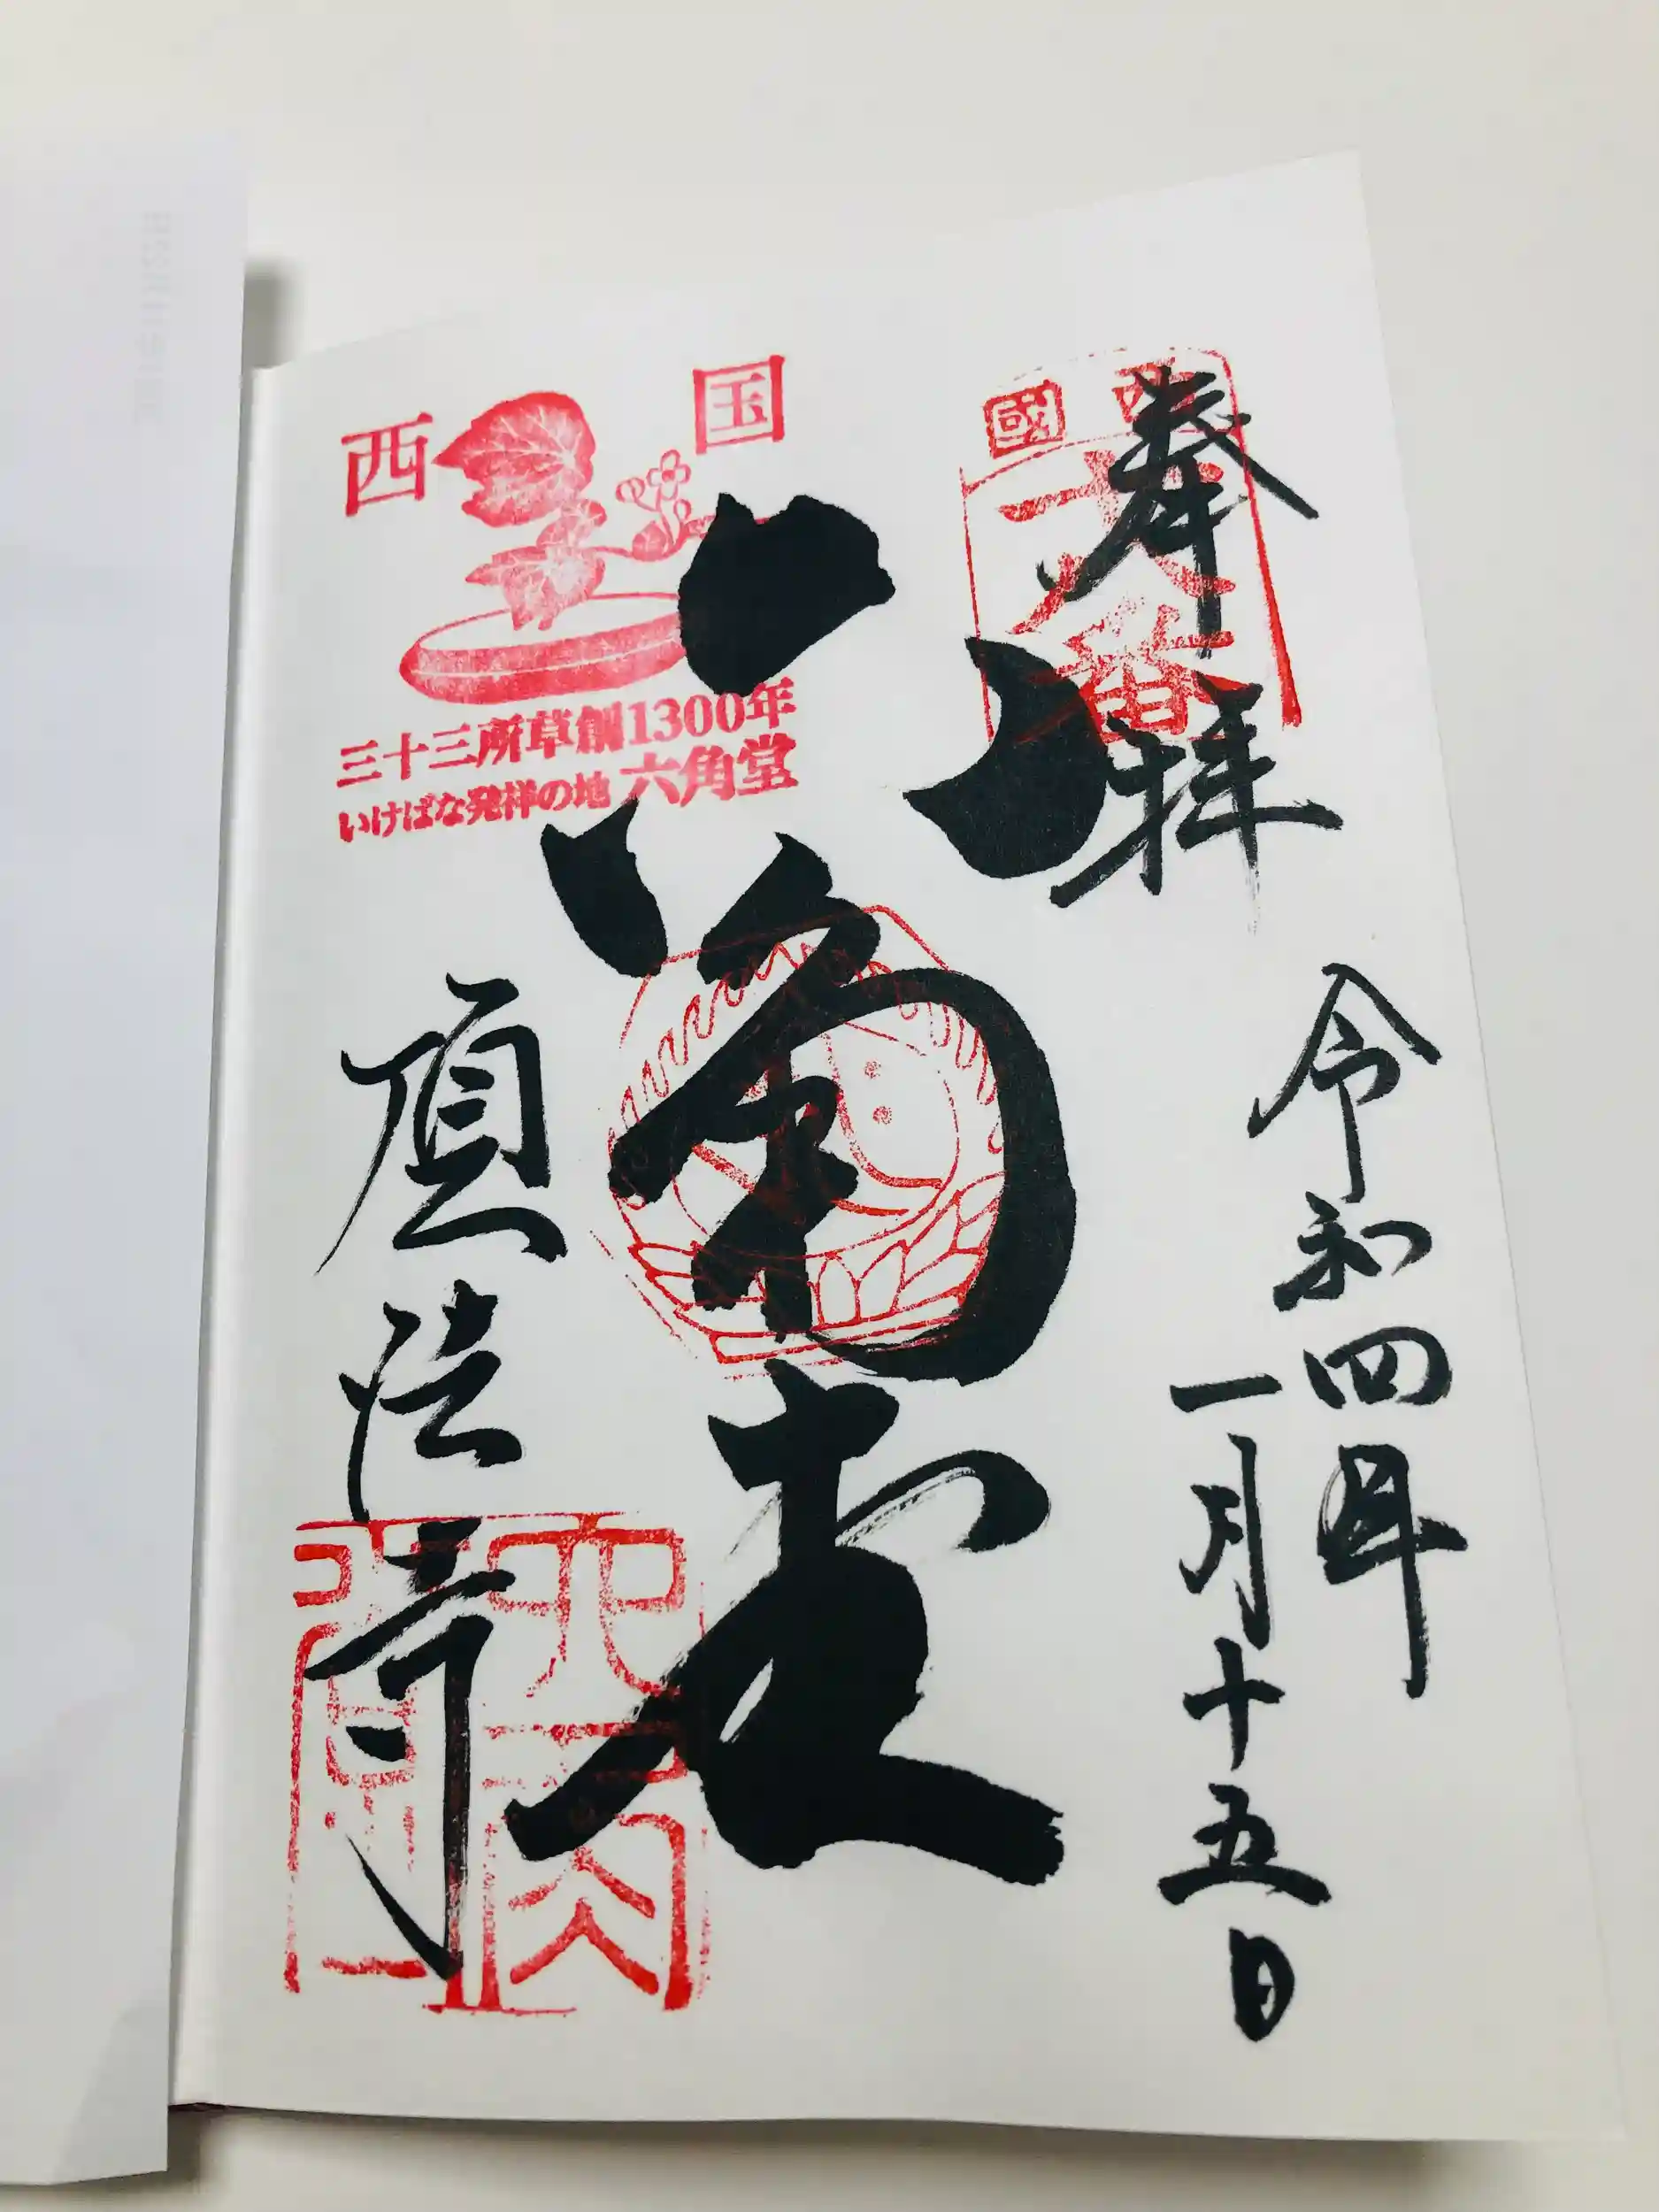 奉拝
令和四年
一月十五日
六角堂
頂法寺
國
番
西国
三十三所草創1300年
いけばな発祥の地 六角堂